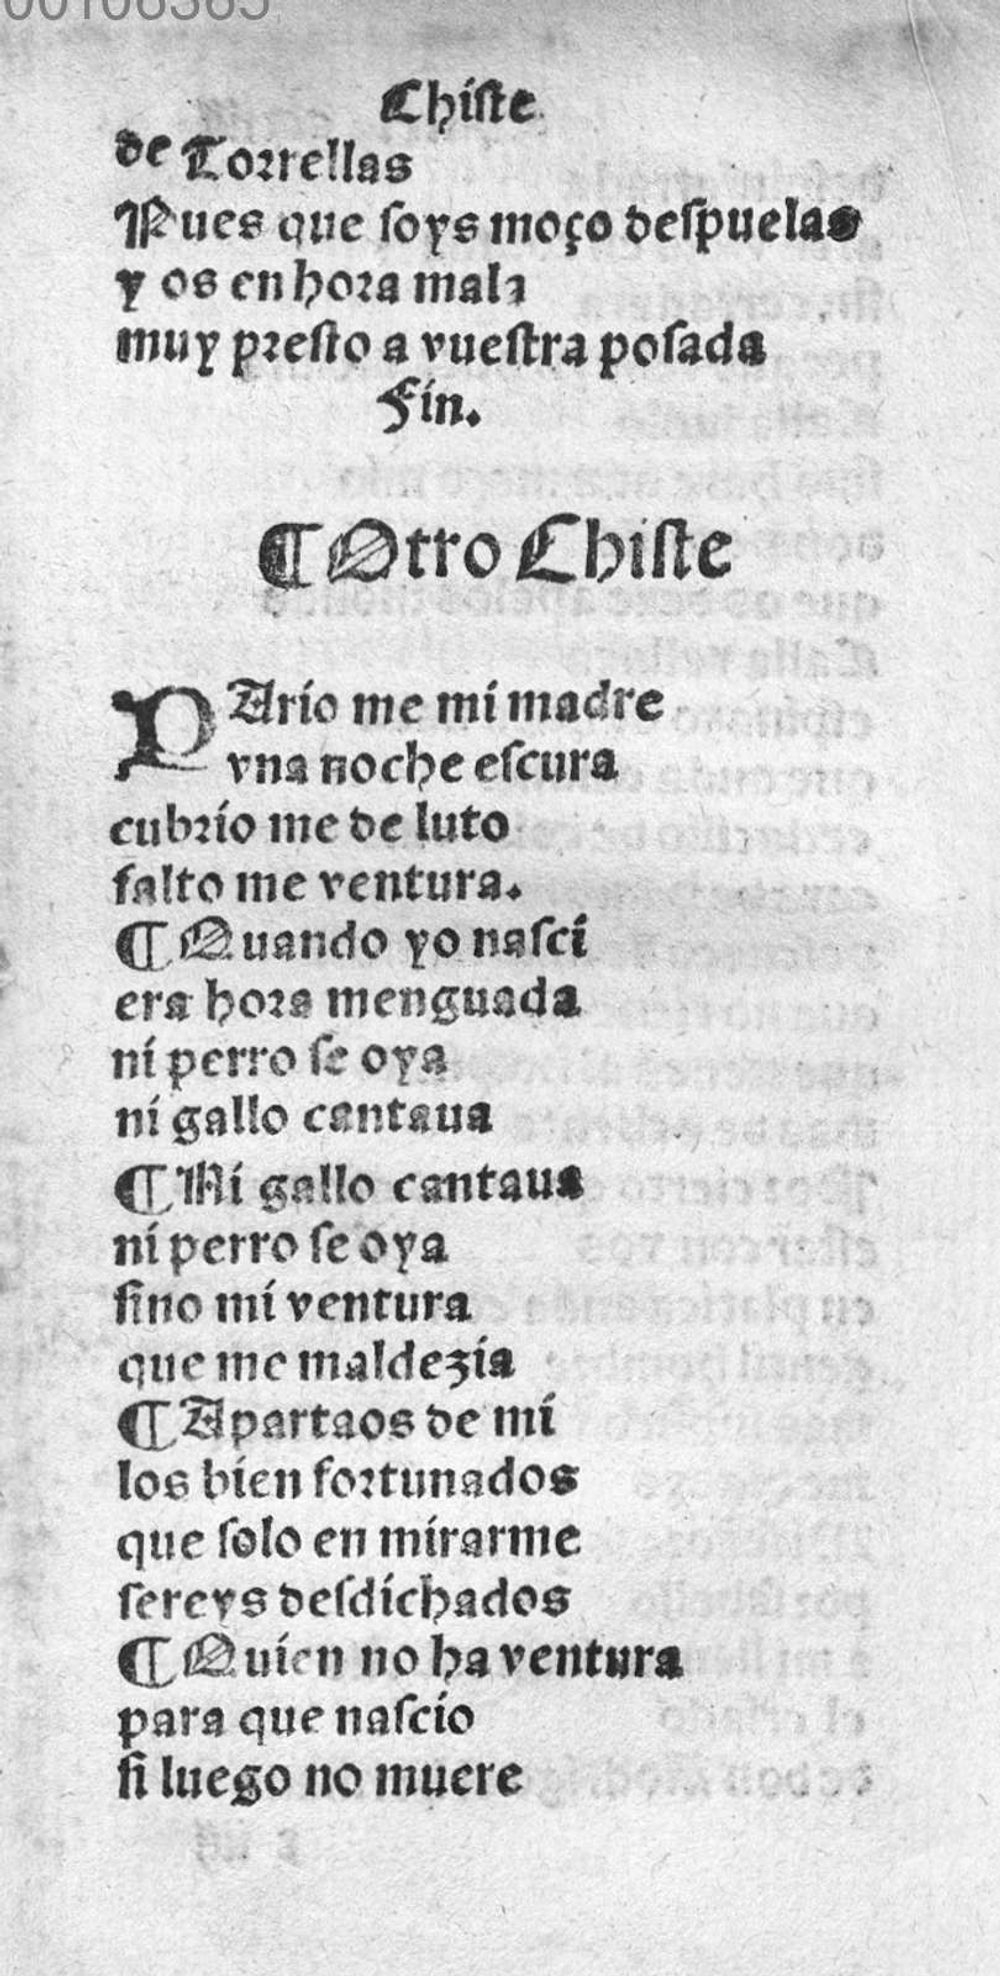 Chiſte
de Torrellas
Pues que ſoys moço deſpuelas
y os en hora mala
muy preſto a vueſtra poſada
Fin.
¶ Otro Chiſte
PArio me mi madre
vna noche eſcura
cubrio me de luto
falto me ventura.
¶ Quando yo naſci
era hora menguada
ni perro ſe oya
ni gallo cantaua
¶ Ni gallo cantaua
ni perro ſe oya
ſino mi ventura
que me maldezia
¶ Apartaos de mi
los bien fortunados
que ſolo en mirarme
ſereys deſdichados
¶ Quien no ha ventura
para que naſcio
ſi luego no muere